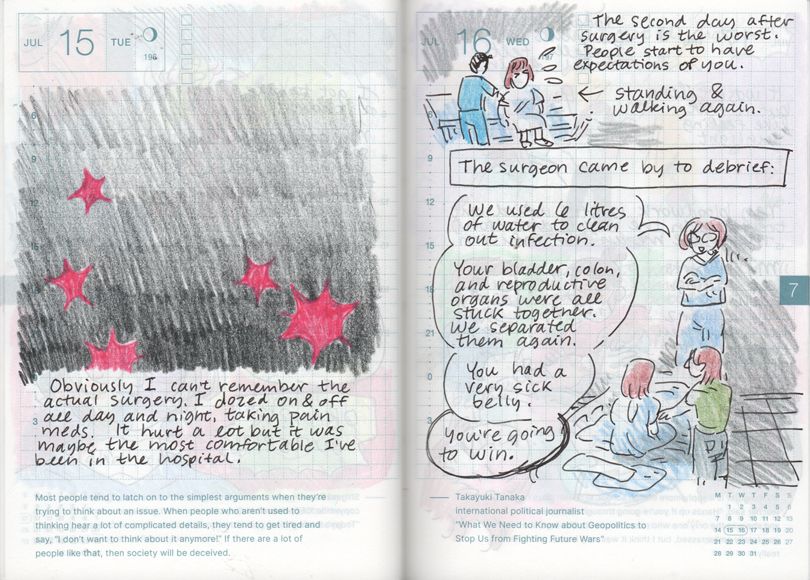 JUL 15 TUE
196
Obviously I can't remember the
actual surgery. I dozed on & off
all day and night, taking pain
meds. It hurt a lot but it was
maybe the most comfortable I've
been in the hospital.
Most people tend to latch on to the simplest arguments when they're
trying to think about an issue. When people who aren't used to
thinking hear a lot of complicated details, they tend to get tired and
say, "I don't want to think about it anymore!" If there are a lot of
people like that, then society will be deceived.
JUL 16 WED
197
The second day after
surgery is the worst.
People start to have
expectations of you.
← standing &
walking again.
The surgeon came by to debrief:
We used 6 litres
of water to clean
out infection.
Your bladder, colon,
and reproductive
organs were all
stuck together.
We separated
them again.
You had a
very sick
belly.
You're going
to win.
7
Takayuki Tanaka
International political journalist
"What We Need to Know about Geopolitics to
Stop Us from Fighting Future Wars"
M T W T F S S
1 2 3 4 5 6
7 8 9 10 11 12 13
14 15 16 17 18 19 20
21 22 23 24 25 26 27
28 29 30 31